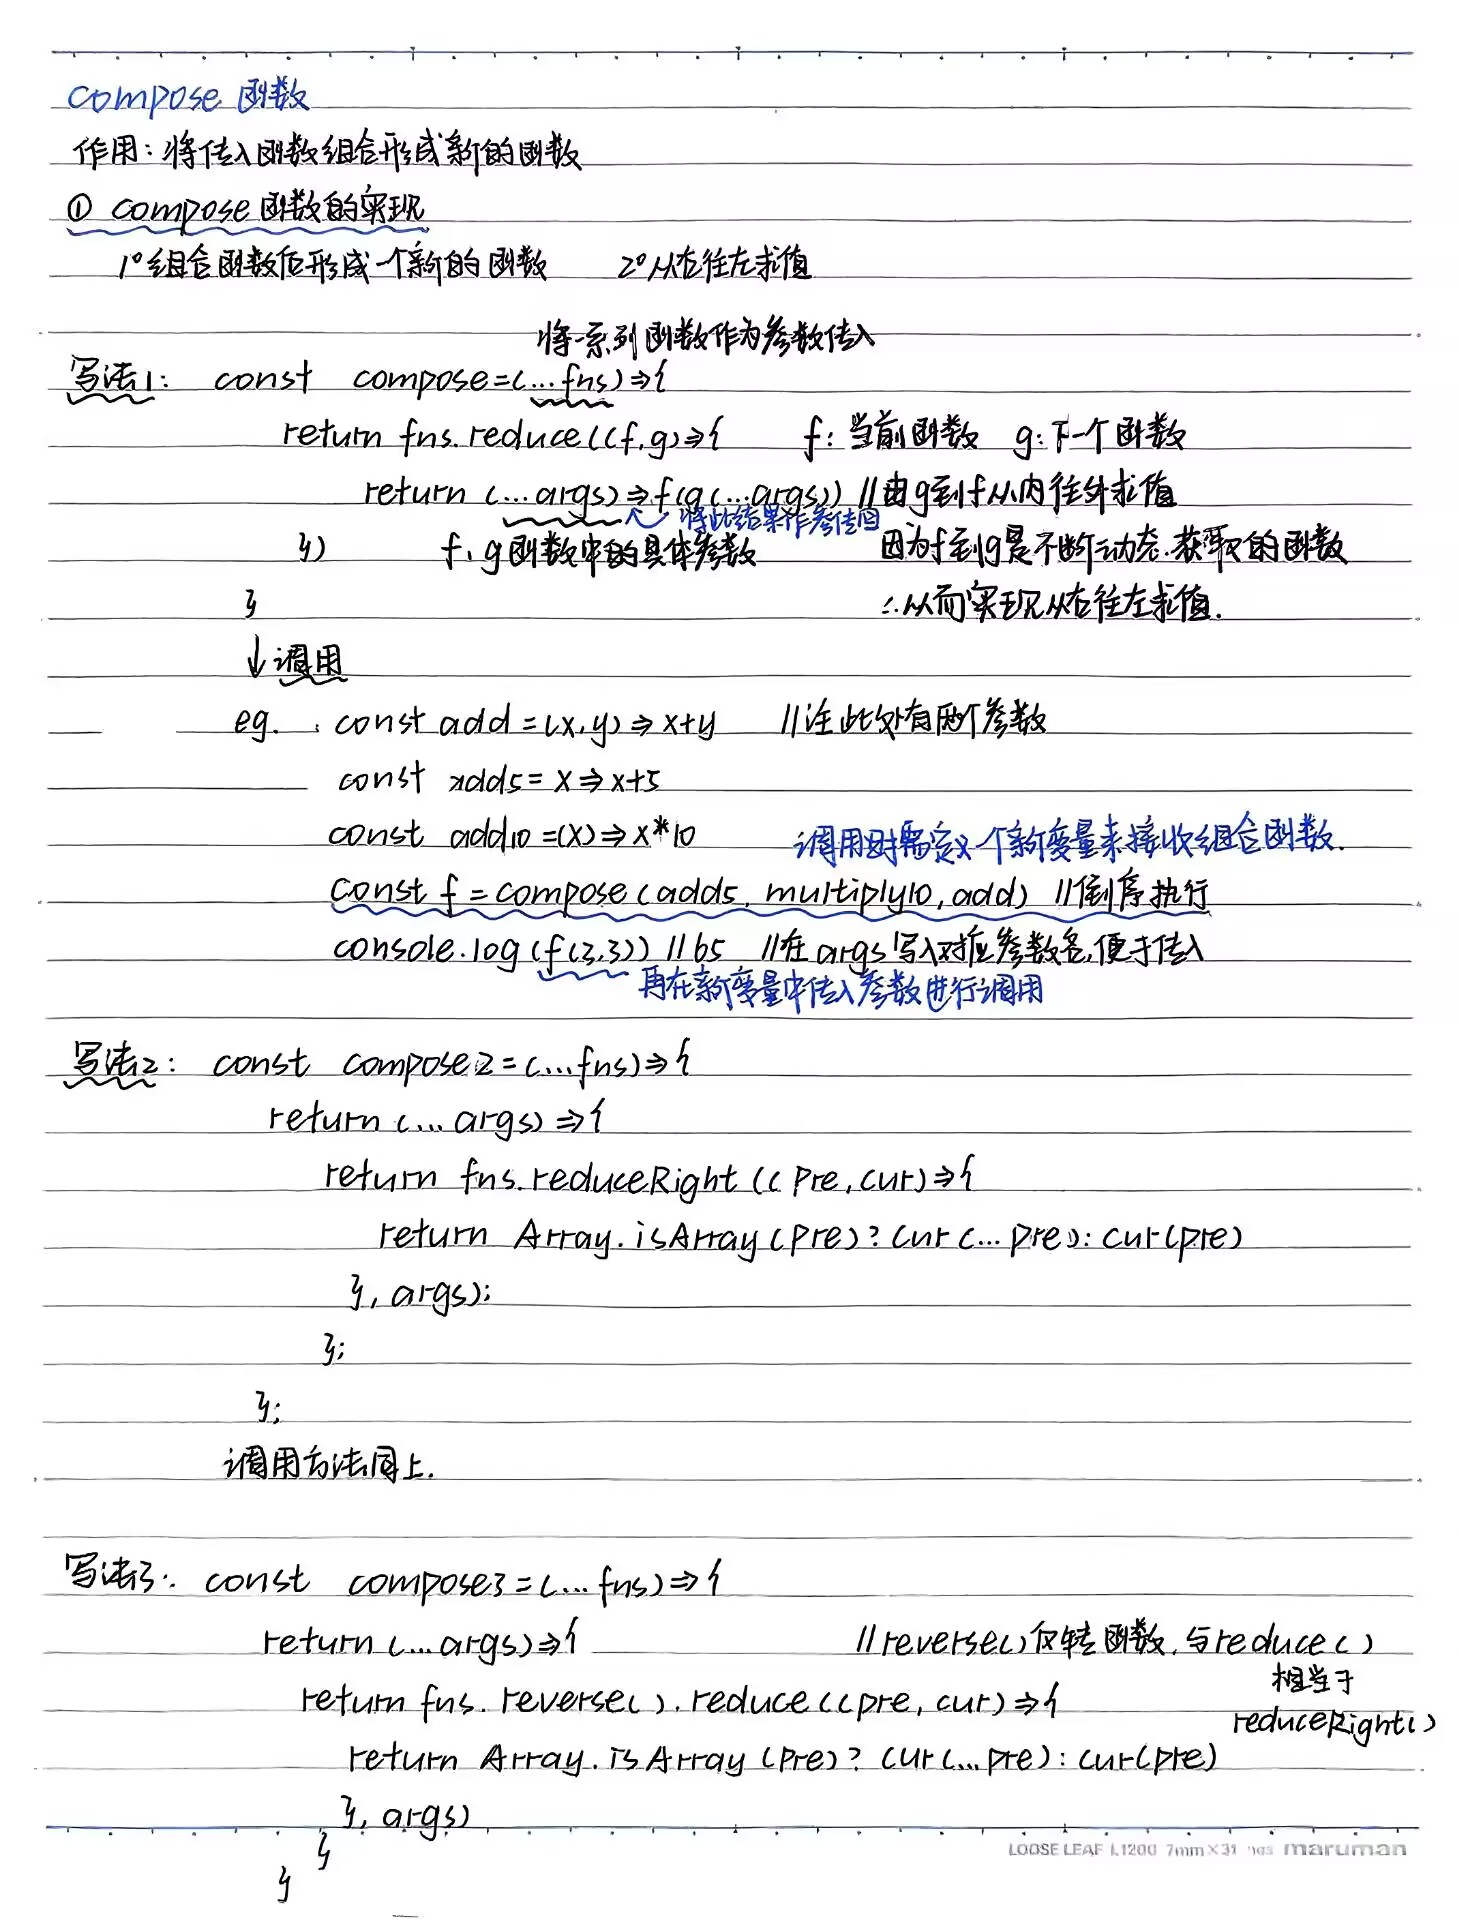 compose 函数
作用：将传入函数组合形成新的函数
① compose函数的实现
1°组合函数后形成一个新的函数 2°从右往左求值
将一系列函数作为参数传入
写法1： const compose=(...fns)=>{
return fns.reduce((f,g)=>{ f：当前函数 g：下一个函数
return (...args)=>f(g(...args)) //由g到f从内往外求值
将此结果作参传回
}) f、g函数中的具体参数 因为f到g是不断动态获取的函数
} ∴从而实现从右往左求值.
↓调用
eg. const add=(x,y)=>x+y //注此处有两个参数
const add5=x=>x+5
const add10=(x)=>x*10 调用时需定义一个新变量来接收组合函数.
const f=compose(add5,multiply10,add) //倒序执行
console.log(f(3,3)) //65 //在args写入对应参数名,便于传入
再在新变量中传入参数进行调用
写法2： const compose2=(...fns)=>{
return(...args)=>{
return fns.reduceRight((pre,cur)=>{
return Array.isArray(pre)?cur(...pre):cur(pre)
},args);
};
};
调用方法同上.
写法3： const compose3=(...fns)=>{
return(...args)=>{ //reverse()仅转函数,与reduce()
相当于
return fns.reverse().reduce((pre,cur)=>{
reduceRight()
return Array.isArray(pre)?cur(...pre):cur(pre)
},args)
}
}
LOOSE LEAF L1200 7mm×31 maruman